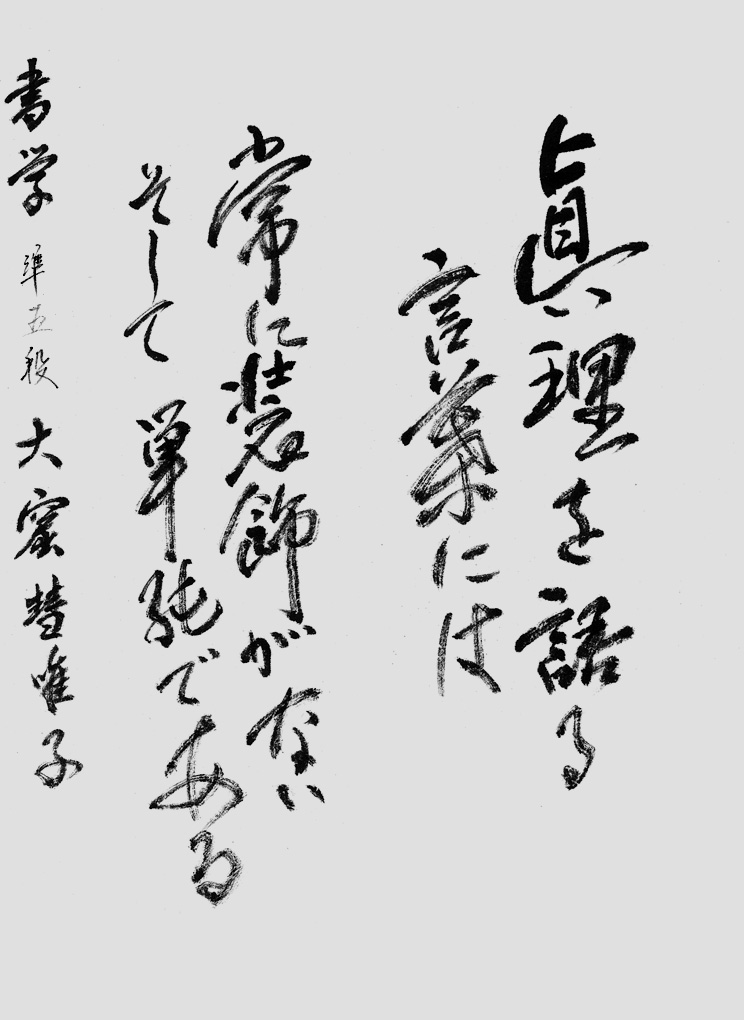 眞理を語る
言葉には
常に装飾がない
そして単純である
書学 準五段 大窪慧唯子